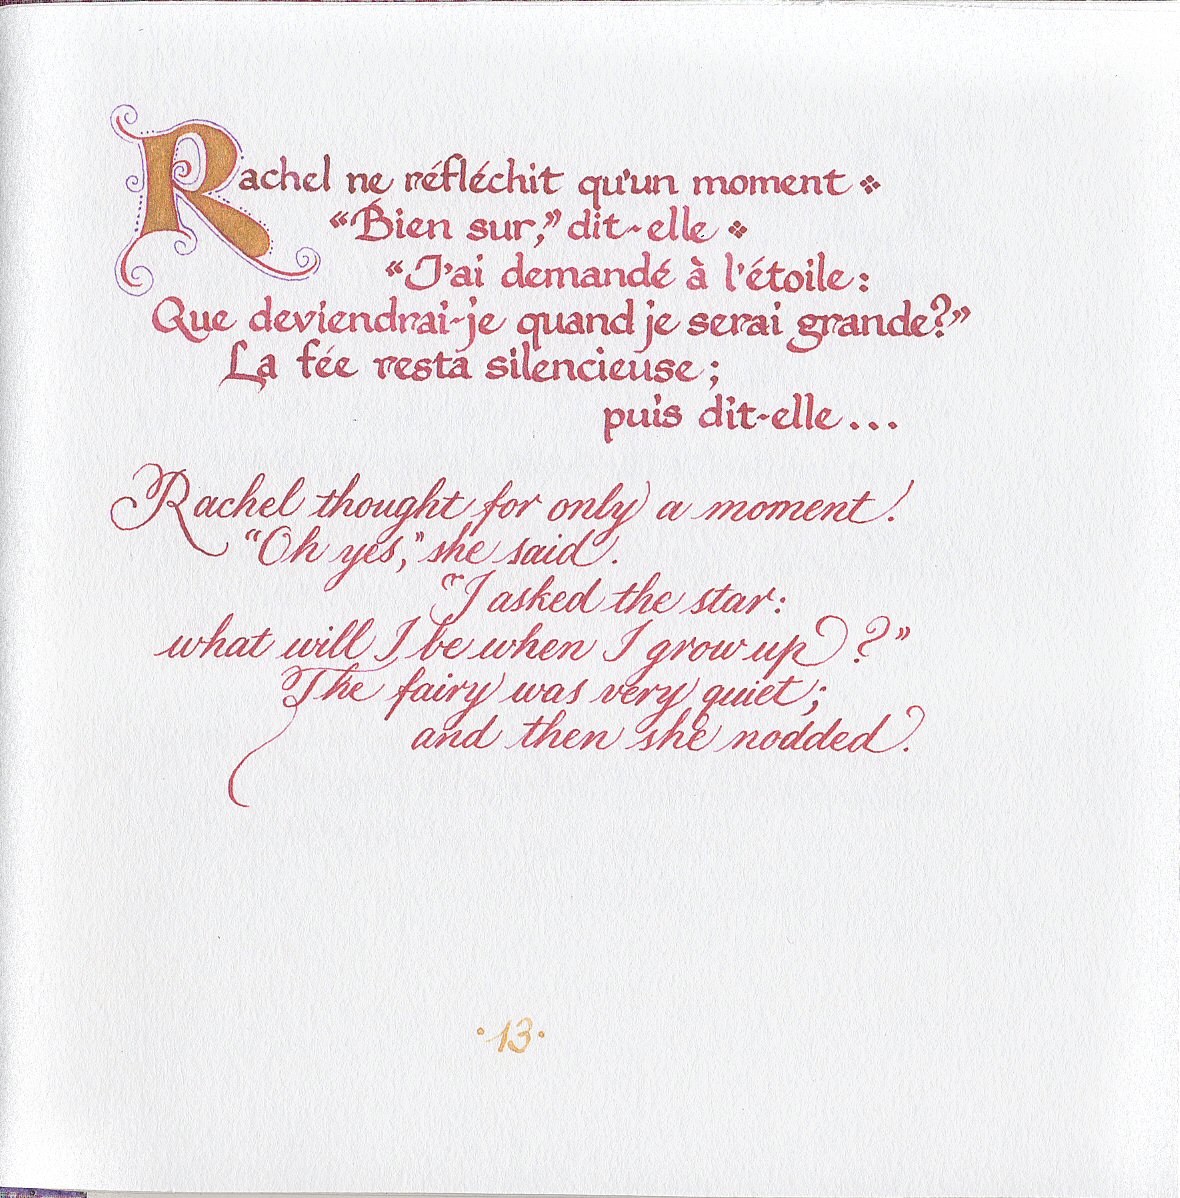 Rachel ne réfléchit qu'un moment ❖
“Bien sur,” dit-elle ❖
“J'ai demandé à l'étoile:
Que deviendrai-je quand je serai grande?”
La fée resta silencieuse;
puis dit-elle...
Rachel thought for only a moment.
“Oh yes,” she said.
“I asked the star:
what will I be when I grow up?”
The fairy was very quiet;
and then she nodded.
·13·